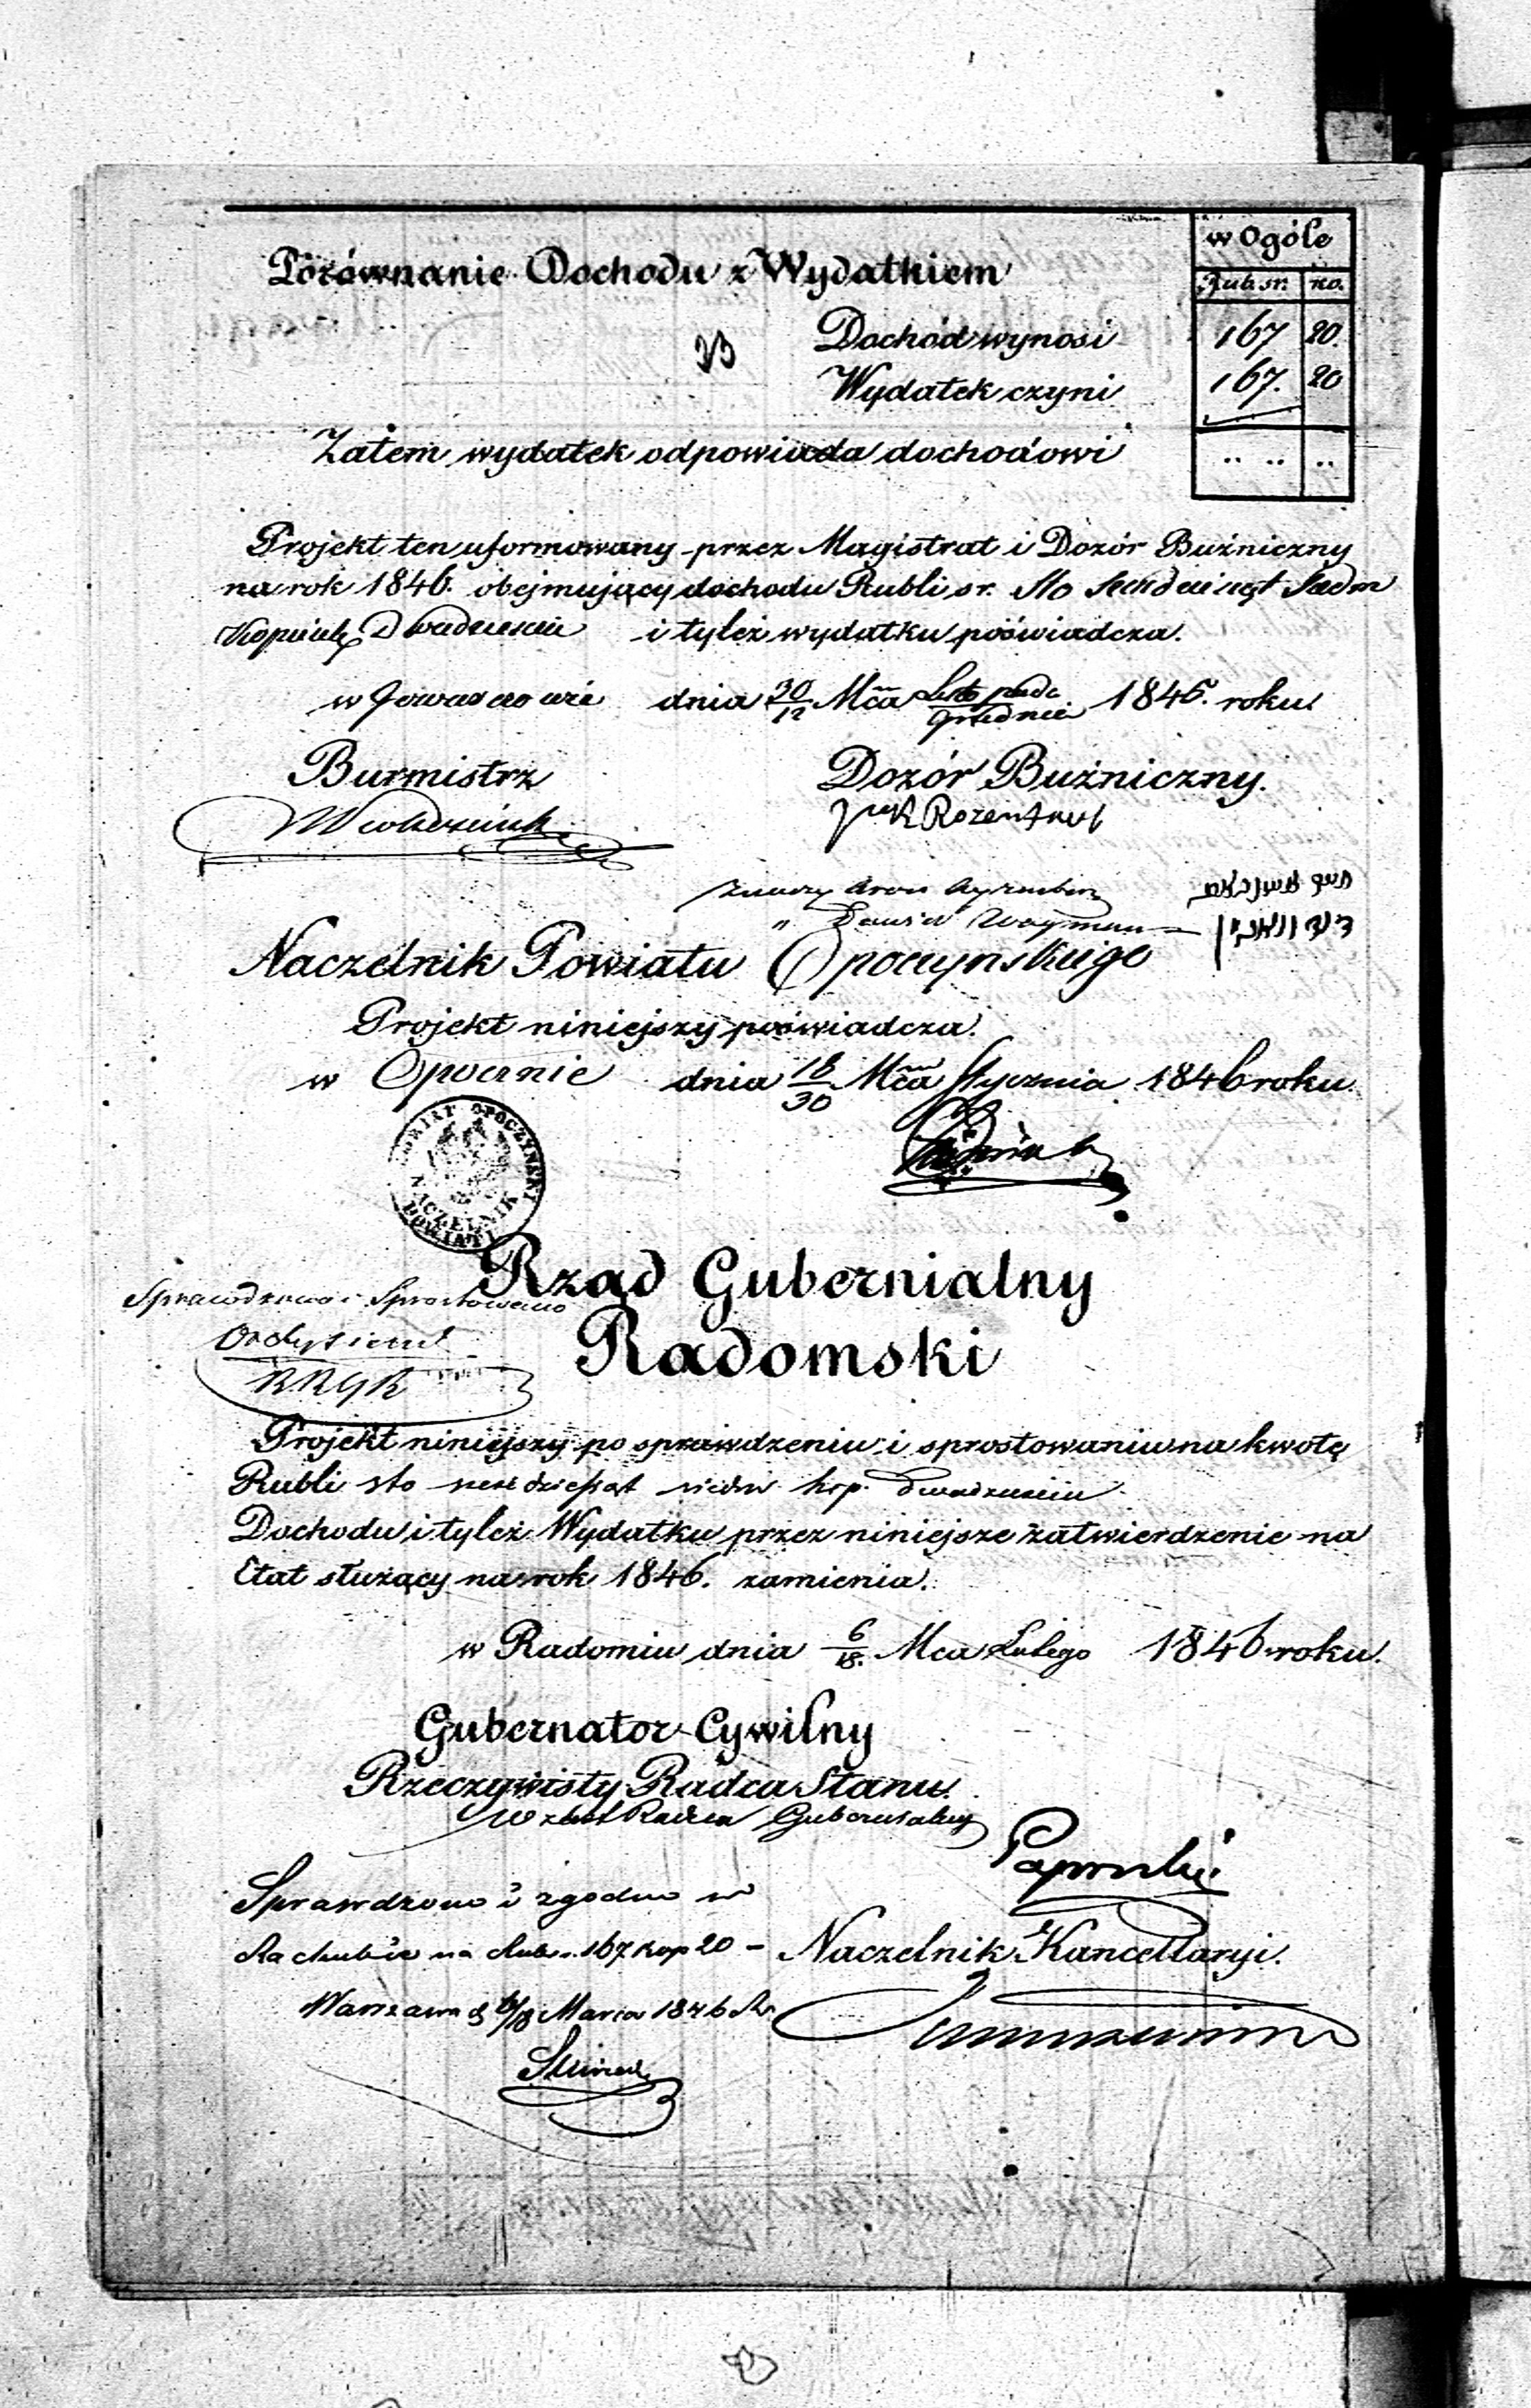 w Ogóle
Porównanie Dochodu z Wydatkiem
Rub. sr. ko.
Dochód wynosi 167 20.
Wydatek czyni 167. 20
Zatem wydatek odpowiada dochodowi
Projekt ten uformowany przez Magistrat i Dozór Bużniczny
na rok 1846. obejmujący dochodu Rubli sr. Sto
Kopiiek Dwadziescia i tyleż wydatku poświadcza.
w dnia 30/12 Mca Listopada/Grudnia 1845. roku.
Burmistrz Dozór Bużniczny.
Rozental
znaczy Aron
" Dawid Wayman
Naczelnik Powiatu Opoczynskiego
Projekt niniejszy poświadcza.
w Opocznie dnia 18/30 Mca Stycznia 1846 roku
POWIAT OPOCZYNSKI
NACZELNIK
POWIATU
Rząd Gubernialny
Sprawdzono i Sprostowano
Radomski
Projekt niniejszy po sprawdzeniu i sprostowaniu na kwotę
Rubli sto sześćdziesiąt siedm kop. dwadzieścia
Dochodu i tyleż Wydatku przez niniejsze zatwierdzenie na
Etat służący na rok 1846. zamienia.
w Radomiu dnia 6/18. Mca Lutego 1846 roku.
Gubernator Cywilny
Rzeczywisty Radca Stanu.
w zast Radca Gubernialny
Sprawdzono i zgodno w
Rachubie na Rub. 167 kop 20 – Naczelnik Kancellaryi.
Warszawa d 6/18 Marca 1846 R.